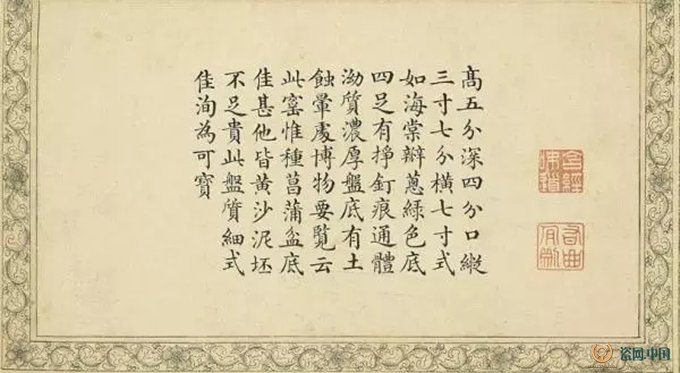 含經味道
高五分深四分口縱
三寸七分橫七寸式
如海棠瓣蔥綠色底
四足有掙釘痕通體
泑質濃厚盤底有土
蝕暈處博物要覽云
此窰惟種菖蒲盆底
佳甚他皆黃沙泥坯
不足貴此盤質細式
佳洵為可寶
瓷网.中国